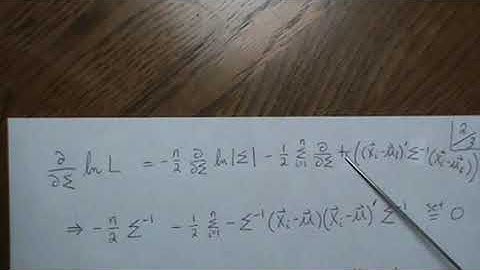 2/3
∂/∂Σ ln L = -n/2 ∂/∂Σ ln|Σ| - 1/2 Σᵢ₌₁ⁿ ∂/∂Σ tr((x⃗ᵢ-μ⃗ᵢ)'Σ⁻¹(x⃗ᵢ-μ⃗ᵢ))
⇒ -n/2 Σ⁻¹ - 1/2 Σᵢ₌₁ⁿ - Σ⁻¹(x⃗ᵢ-μ⃗)(x⃗ᵢ-μ⃗)'Σ⁻¹ set= 0